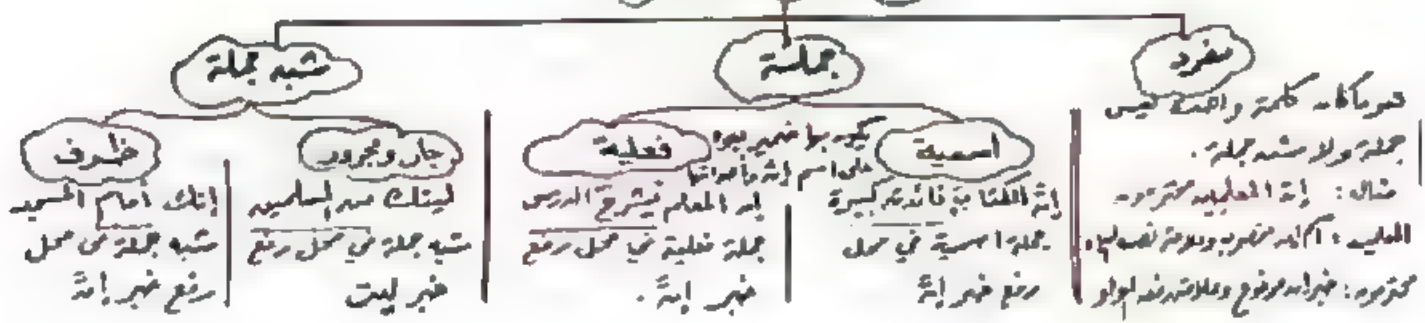 مفرد
جملة
شبه جملة
هو ما كان كلمة واحدة ليس
جملة ولا شبه جملة.
مثال: إنّ المعلمين محترمون
المعلمين: اسم إن منصوب وعلامة نصبه الياء
محترمون: خبر إن مرفوع وعلامة رفعه الواو
يكون بها ضمير يعود
على اسم إنّ وأخواتها
اسمية
إنّ الكتاب فائدته كبيرة
جملة اسمية في محل
رفع خبر إنّ
فعلية
إن المعلم يشرح الدرس
جملة فعلية في محل رفع
خبر إنّ.
جار ومجرور
ليتك من المسلمين
شبه جملة في محل رفع
خبر ليت
ظرف
إنك أمام المسجد
شبه جملة في محل
رفع خبر إنّ